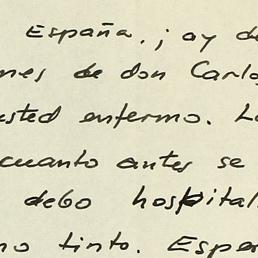 España, ¡ay de
nes de don Carlos
usted enfermo. La
cuanto antes se
debo hospital
no tinto. Esper